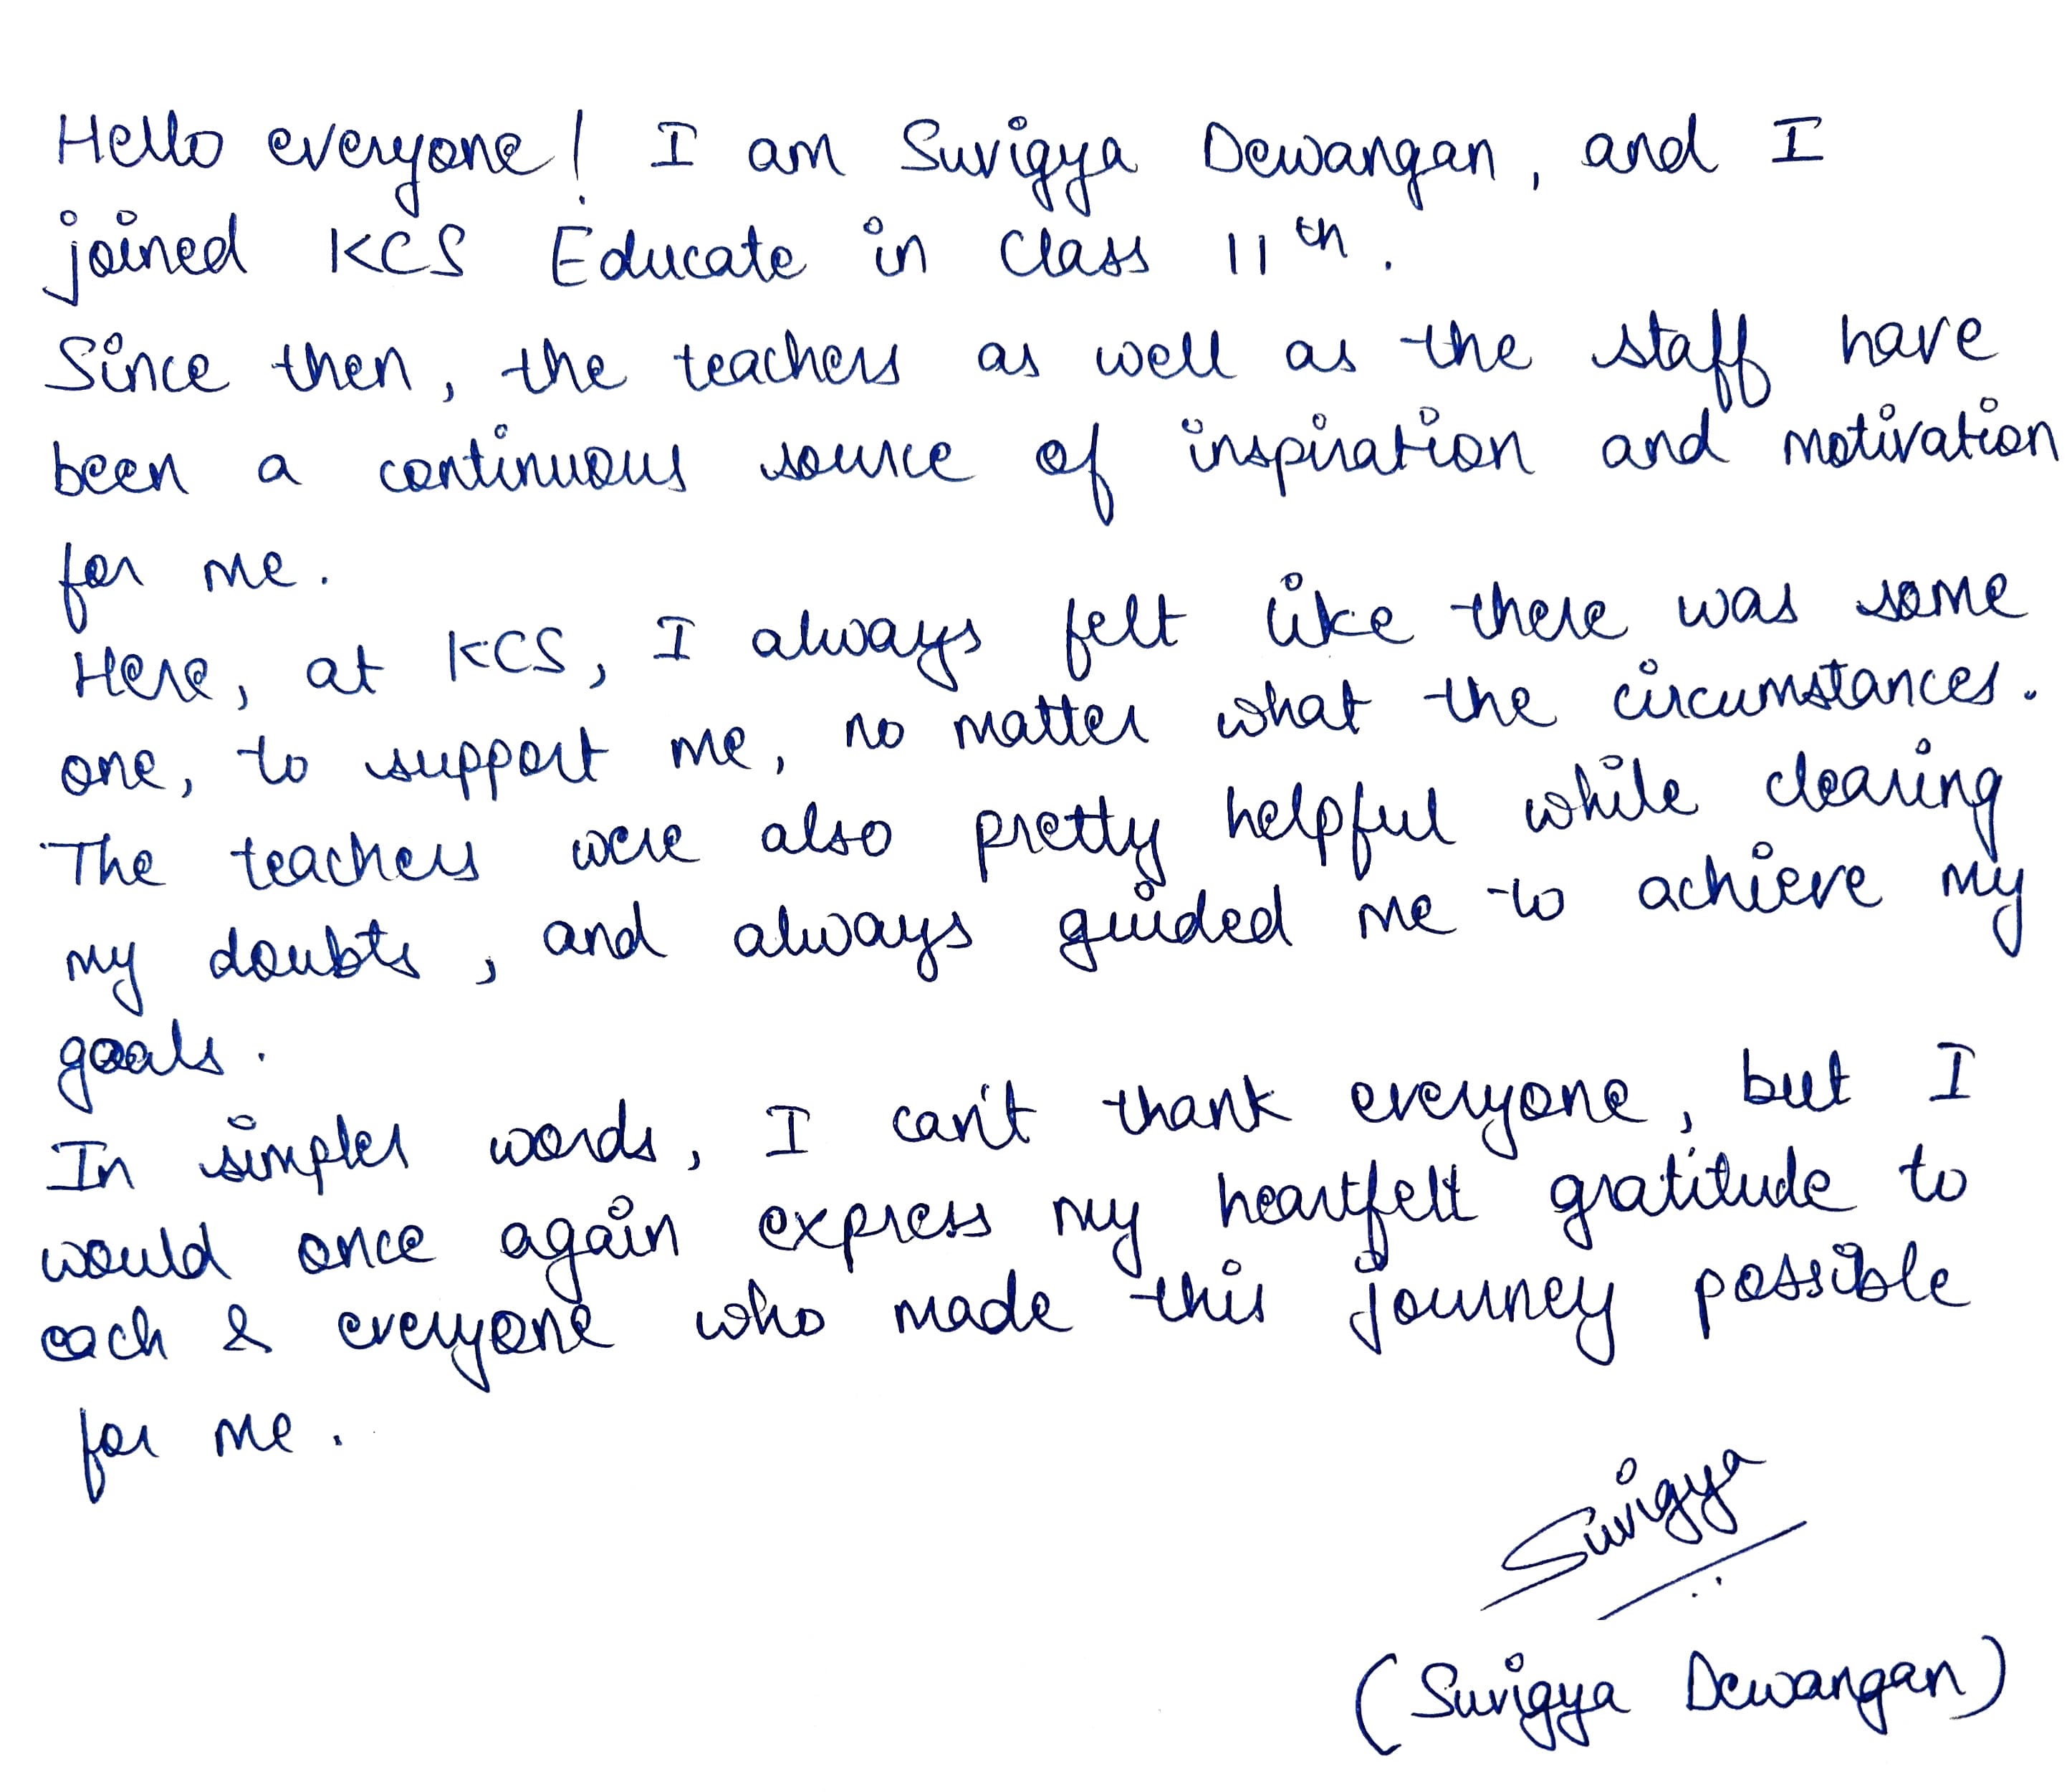 Hello everyone! I am Suvigya Dewangan, and I
joined KCS Educate in Class 11th.
Since then, the teachers as well as the staff have
been a continuous source of inspiration and motivation
for me.
Here, at KCS, I always felt like there was some
one, to support me, no matter what the circumstances.
The teachers were also pretty helpful while clearing
my doubts, and always guided me to achieve my
goals.
In simpler words, I can't thank everyone, but I
would once again express my heartfelt gratitude to
each & everyone who made this journey possible
for me.
Suvigya
(Suvigya Dewangan)